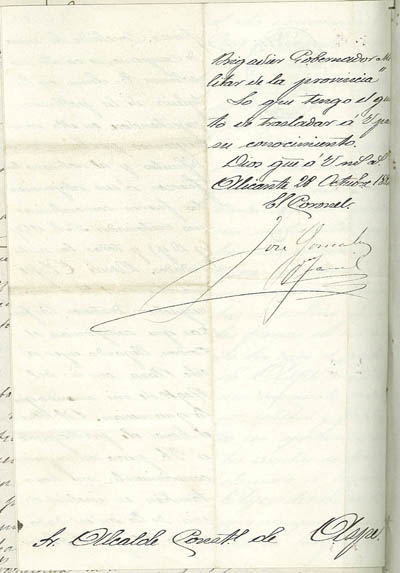 Brigadier Gobernador Mi
litar de la provincia"
Lo que tengo el gus
to de trasladar á V. pa
su conocimiento.
Dios gue á V. m. a.
Alicante 28 Octubre 18
El Coronel
José Gonzalez
Sr. Alcalde Constl. de Aspe.